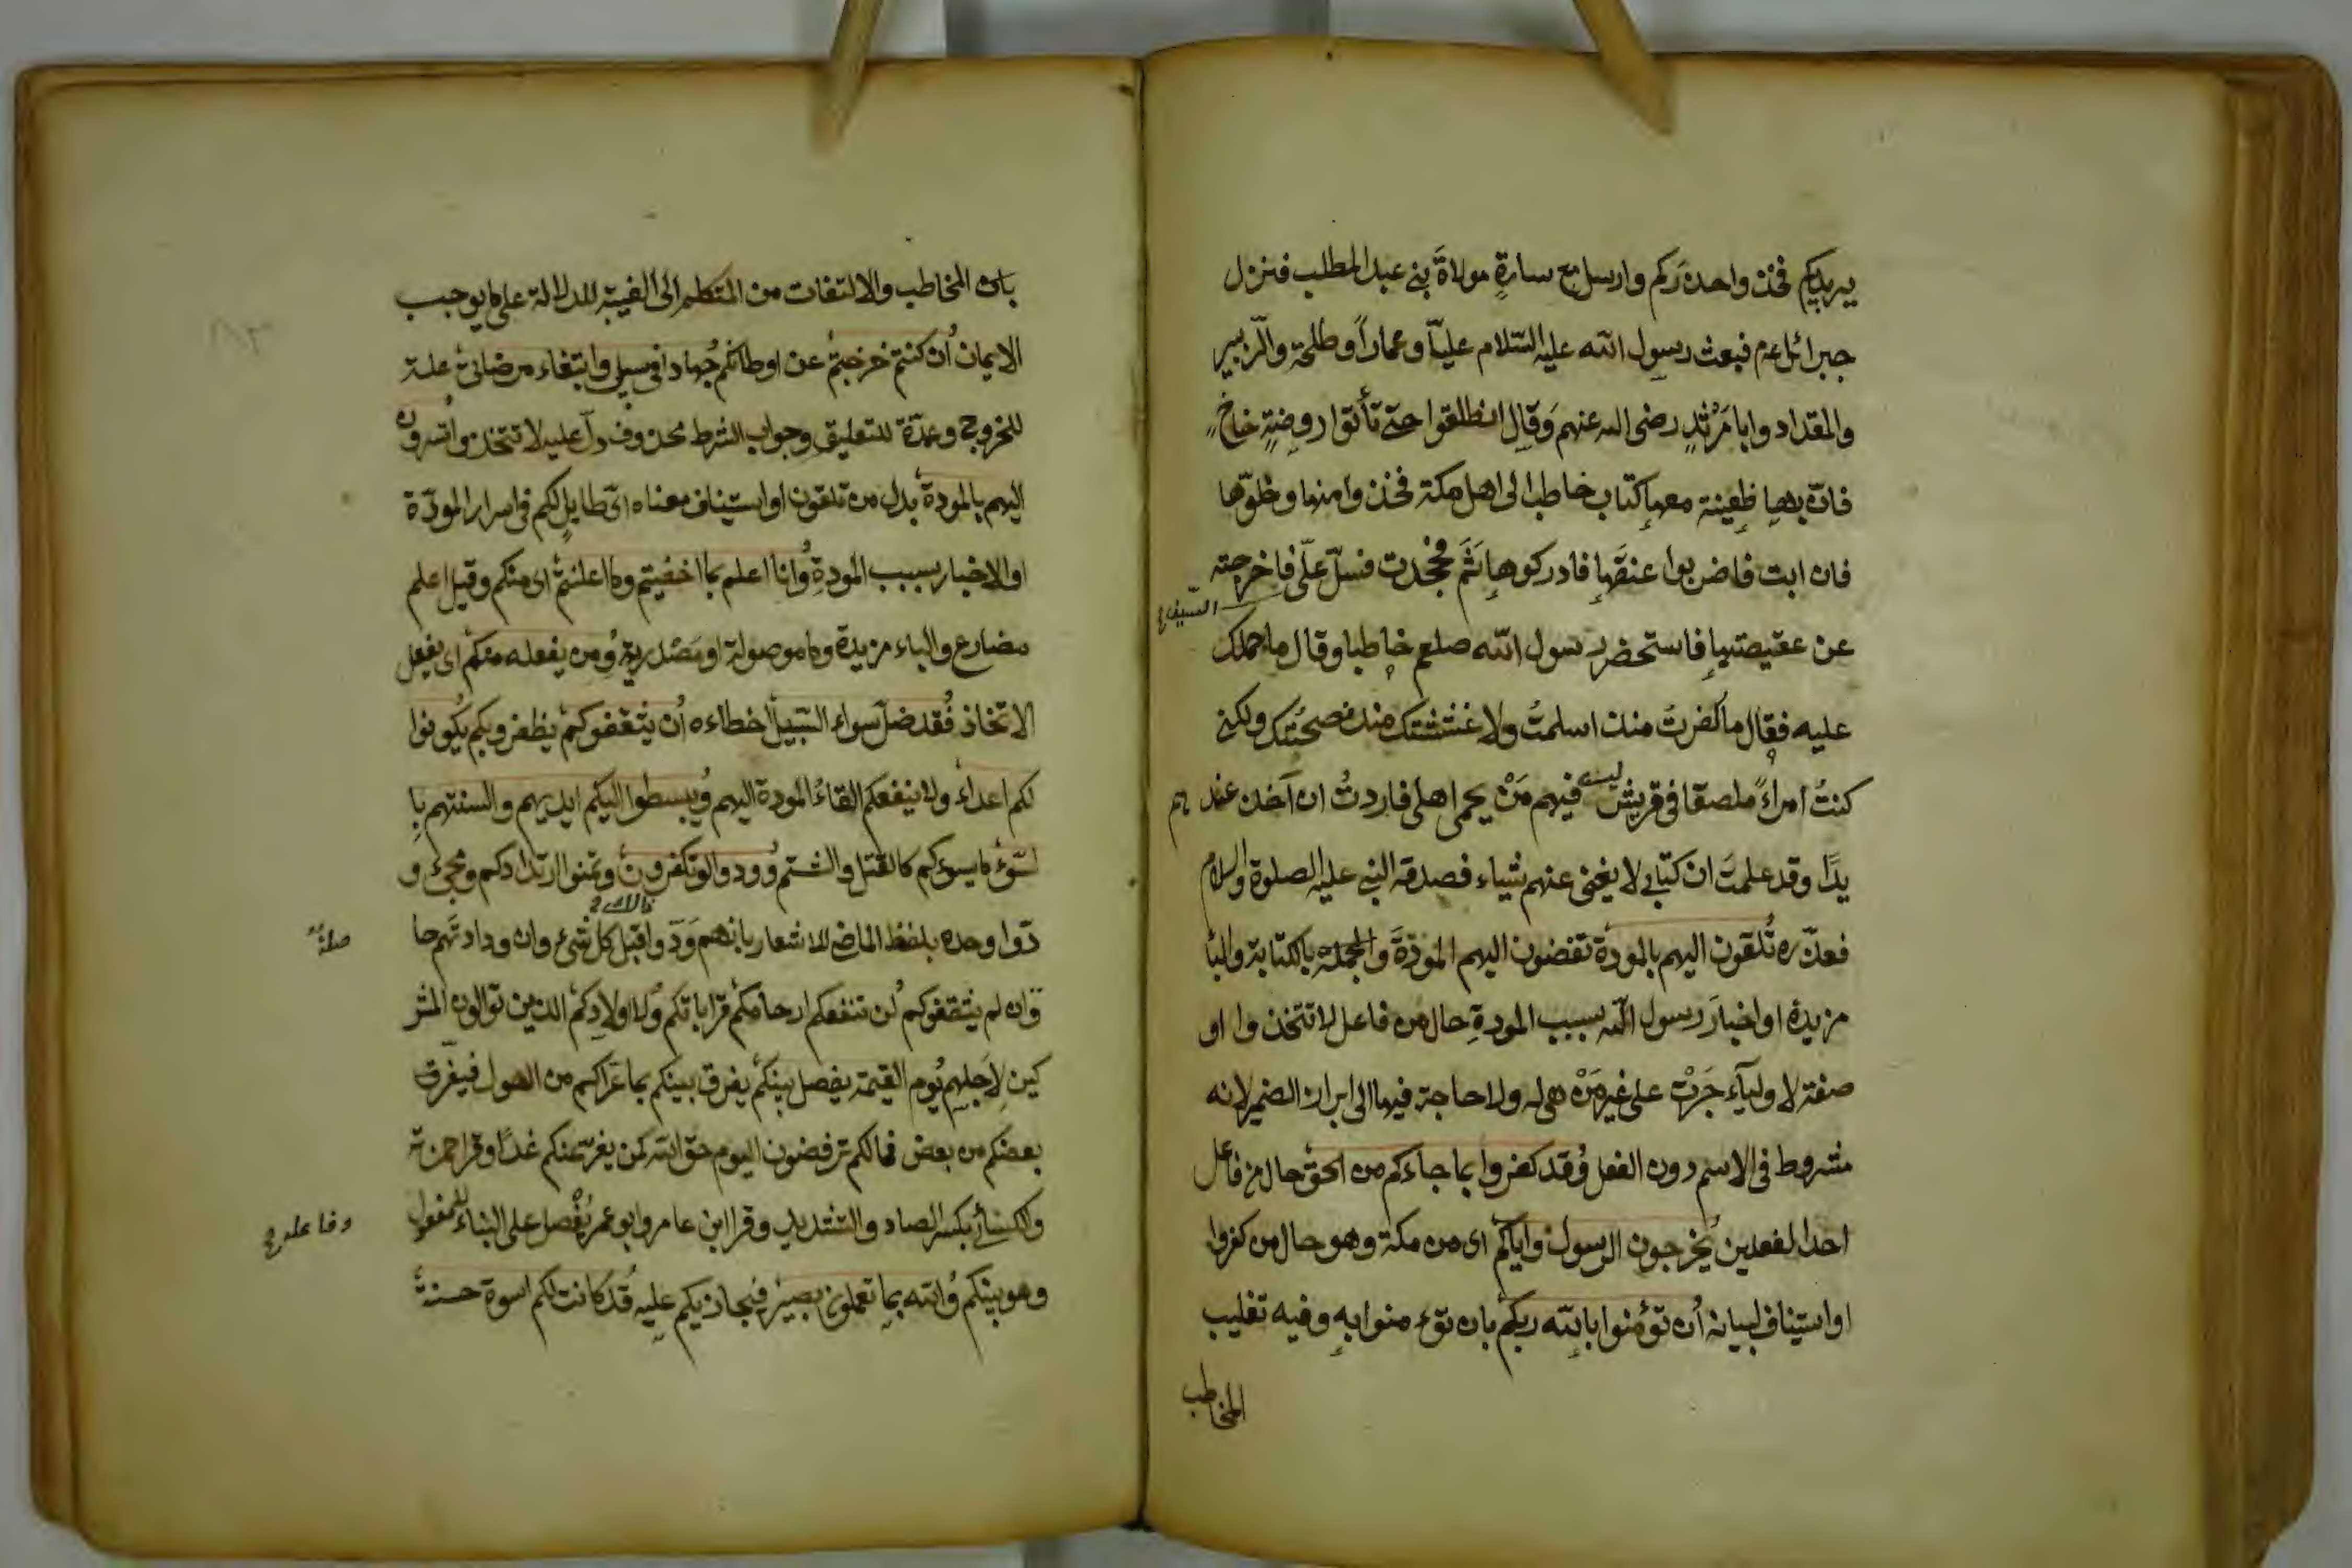 يريدكم فخذوا حذركم وارسل مع سارةٍ مولاة بني عبد المطلب فنزل
جبرائل عم فبعث رسول الله عليه السّلام عليّاً وعماراً وطلحة والزّبير
والمقداد وابا مَرْثدٍ رضى الله عنهم وَقال انطلقوا حتى تأتوا روضةٍ خاخٍ
فانّ بها ظعينة معها كتاب خاطب الى اهل مكة فخذوا منها وخلوّها
فان ابت فاضربوا عنقَها فادركوها ثَمَّ فجحدت فسلّ علىّ فاخرجته
السّيف
عن عقيصتها فاستحضر رسول الله صلعم خاطبا وقال ما حملك
عليه فقال ما كفرتُ منذ اسلمتُ ولا غششتك منذ نصحتُك ولكني
كنتُ امراءً ملصقا في قريش ليس فيهم مَنْ يحمى اهلى فاردتُ ان آخذ عند هم
يدًا وقد علمتُ ان كتابي لا يغنى عنهم شياء فصدقه النبي عليه الصلوة والسلام
فعذّره تُلقون اليهم بالمودة تفضون اليهم المودّةَ والجملة بالكتابة والبا
مزيدة او اخبارَ رسول الله بسبب المودةِ حال من فاعل لا تتخذوا او
صفة لاوليآء جَرَتْ على غير مَنْ هى له ولا حاجة فيها الى ابراز الضمير لانه
مشروط في الاسم دون الفعل وُقد كفروا بما جاءكم من الحق حال من فاعل
احد الفعلين يُخرجون الرسول واياكم اى من مكة وهو حال من كفروا
او استيناف لبيانه اُن تؤمنوا بالله ربكم بان تؤمنوا به وفيه تغليب
المخاطب
بان المخاطب والالتفات من المتكلم الى الغيبة للدلالة على ما يوجب
الايمان اُن كنتم خرجتم عن اوطانكم جُهادا في سبيلي وابتغاء مرضاتي علة
للخروج وعمدة للتعليق وجواب الشرط محذوف دلّ عليه لا تتخذوا تُسرون
اليهم بالمودة بدل من تلقون او استيناف معناه اىّ طايلٍ لكم في اسرار المودّة
او الاخبار بسبب المودةِ وُانا اعلم بما اخفيتم وما اعلنتم اى منكم وقيل اعلم
مضارع والباء مزيدة وما موصولة او مَصْدرية وُمن يفعله منكم اى يفعل
الاتخاذ فُقد ضلّ سواء السّبيل اخطاءه اُن يثقفوكم يظفروا بكم يُكونوا
لكم اعداء ولا ينفعكم القاءُ المودة اليهم وُيبسطوا اليكم ايديهم والسنتهم با
لسّوء ما يسوءكم كالقتل والشتم وُودوا لو تكفرون وتمنوا ارتدادكم ومجئ و
دّوا وحده بلفظ الماضي للاشعار بانهم وَدّوا قبل كل شئ وان ودادتهم حا
صلةٌ
وّان لم يثقفوكم لُن تنفعكم ارحامكم قراباتكم وُلا اولادكم الذين توالون المشر
كين لِاَجلهم يُوم القيمة يفصل بينكم يفرق بينكم بما عَراكم من الهول فيفرق
بعضكم من بعض فمالكم ترفضون اليوم حق الله لمن يفرّ عنكم غدًا وقرا حمزة
والكسائي بكسر الصاد والتشديد وقرا ابن عامر وابو عمر يُفْصل على البناء للمفعول
وفاعله
وهو بينكم وُالله بما تعملون بصير فيجازيكم عليه قُد كانت لكم اسوة حسنة